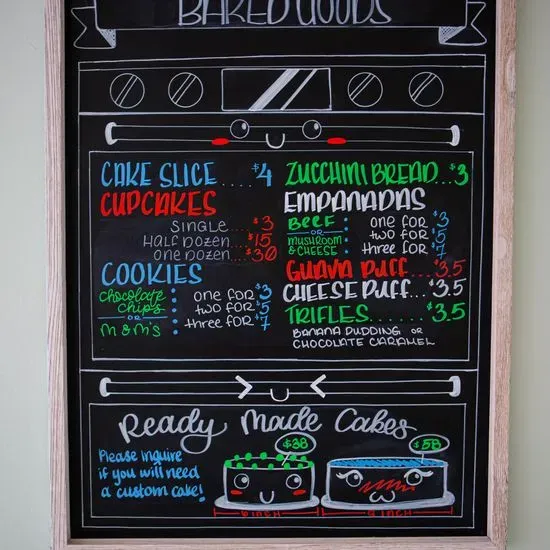 BAKED GOODS
CAKE SLICE....$4
CUPCAKES
SINGLE...$3
HALF DOZEN...$15
ONE DOZEN...$30
COOKIES
chocolate chips
OR
M & M's
one for $3
two for $5
three for $7
ZUCCHINI BREAD...$3
EMPANADAS
BEEF
OR
MUSHROOM
& CHEESE
one for $3
two for $5
three for $7
GUAVA PUFF...$3.5
CHEESE PUFF...$3.5
TRIFLES.......$3.5
BANANA PUDDING OR
CHOCOLATE CARAMEL
Ready Made Cakes
Please inquire
if you will need
a custom cake!
$38
$58
6 INCH
9 INCH